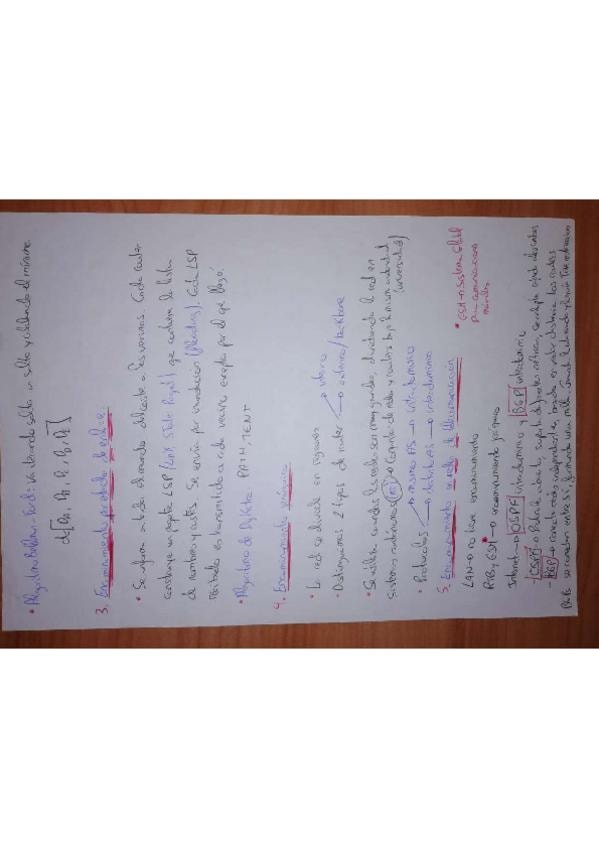 • Algoritmo Bellman-Ford: Va iterando salto a salto y calculando el mínimo.
3. Encaminamiento por estado de enlace
• Se informa a toda el mundo del coste a los vecinos. Cada router
construye un paquete LSP (Link State Packet) que contiene la lista
de nombres y costes. Se envía por inundación (flooding). Cada LSP
recibido es transmitido a cada vecino excepto por el que llegó.
• Algoritmo de Dijkstra: PATH, TENT
4. Encaminamiento jerárquico
• La red se divide en regiones
- Distinguimos 2 tipos de router → interno
→ externo/backbone
• Se utiliza cuando las redes son muy grandes, dividiendo la red en
sistemas autónomos (AS) → Conjunto de redes y routers bajo la misma autoridad
(universidad)
• Protocolos → mismo AS → intradominio
→ distinto AS → interdominio
5. Encaminamiento en redes de telecomunicación
LAN → no tiene encaminamiento
RTB y GSM* → encaminamiento jerárquico
* GSM → Sistema Global
para comunicaciones
móviles
Internet → OSPF intradominio y BGP interdominio
OSPF →
- BGP → conecta redes independientes, basado en vector distancia. Los routers
BGP se conectan entre sí, formando una malla.